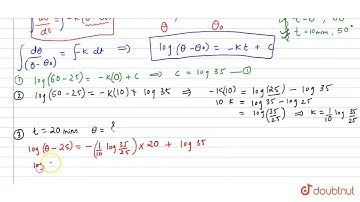 ∫ dθ/dt = ∫-k(θ-θ₀) θ θ₀ t=10min, 50°
∫ dθ/(θ-θ₀) = ∫-k dt ⇒ log(θ-θ₀) = -kt + c
① log(60-25) = -k(0) + c ⇒ c = log 35 —①
② log(50-25) = -k(10) + log 35 ⇒ -k(10) = log(25) - log 35
10 k = log 35 - log 25
= log(35/25) ⇒ k = 1/10 log 35/25
③ t = 20 mins θ = ?
log(θ-25) = -(1/10 log 35/25) × 20 + log 35
log
doubtnut